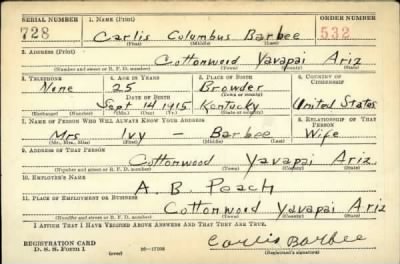 SERIAL NUMBER 1. NAME (Print) ORDER NUMBER
728 Carlis Columbus Barbee 532
(First) (Middle) (Last)
2. ADDRESS (Print)
Cottonwood Yavapai Ariz
(Number and street or R. F. D. number) (Town) (County) (State)
3. TELEPHONE 4. AGE IN YEARS 5. PLACE OF BIRTH 6. COUNTRY OF CITIZENSHIP
None 25 Browder
DATE OF BIRTH (Town or county)
Sept 14 1915 Kentucky United States
(Exchange) (Number) (Mo.) (Day) (Yr.) (State or country)
7. NAME OF PERSON WHO WILL ALWAYS KNOW YOUR ADDRESS 8. RELATIONSHIP OF THAT PERSON
Mrs Ivy - Barbee Wife
(Mr., Mrs., Miss) (First) (Middle) (Last)
9. ADDRESS OF THAT PERSON
Cottonwood Yavapai Ariz.
(Number and street or R. F. D. number) (Town) (County) (State)
10. EMPLOYER'S NAME
A. B. Peach
11. PLACE OF EMPLOYMENT OR BUSINESS
Cottonwood Yavapai Ariz
(Number and street or R. F. D. number) (Town) (County) (State)
I AFFIRM THAT I HAVE VERIFIED ABOVE ANSWERS AND THAT THEY ARE TRUE.
REGISTRATION CARD
D. S. S. Form 1 16-17105 Carlis Barbee
(Registrant's signature)